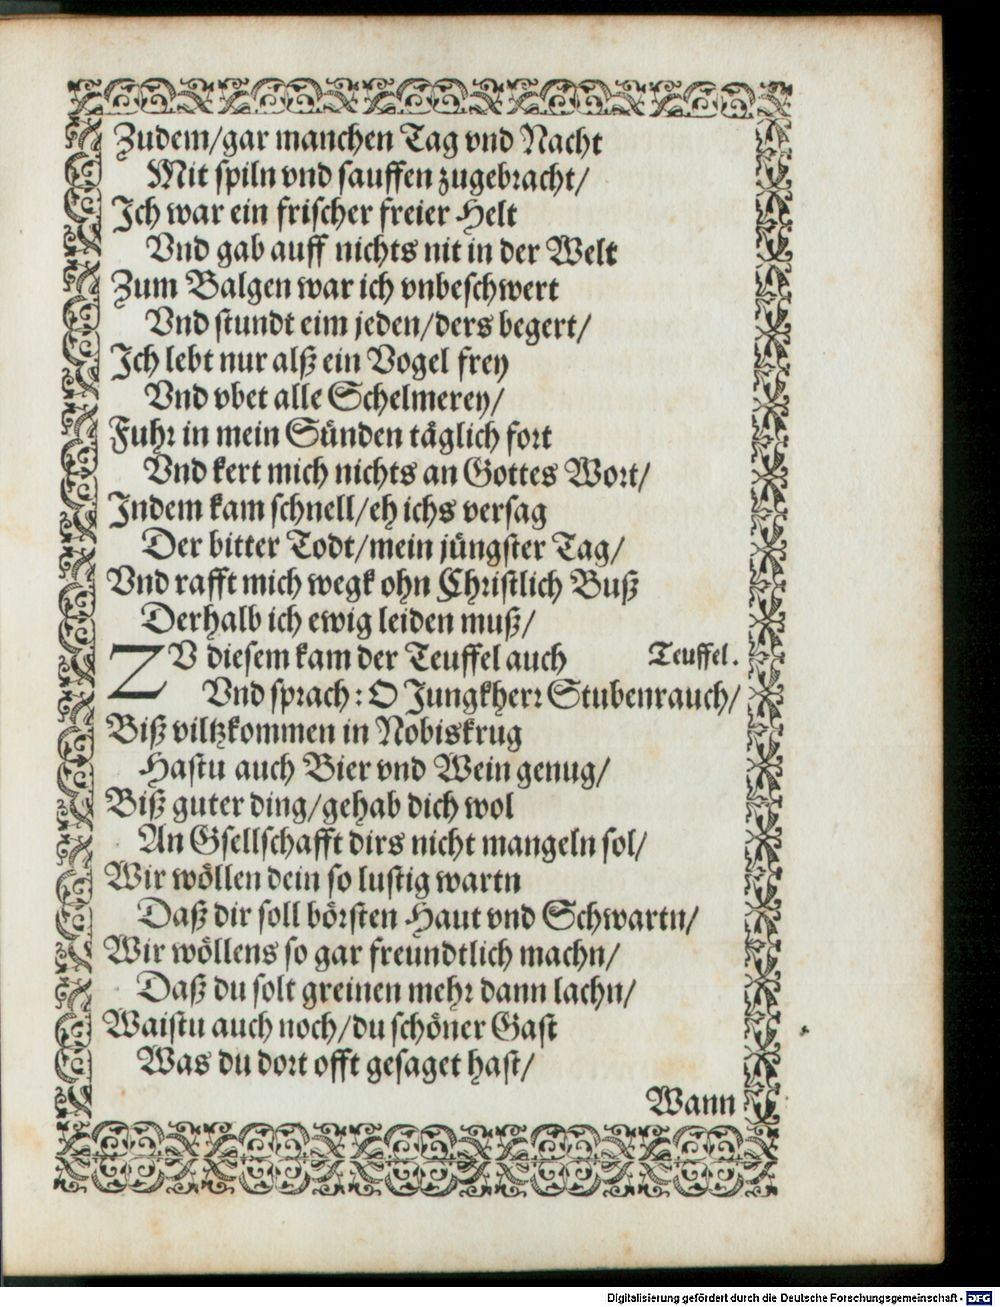 Zudem/gar manchen Tag vnd Nacht
Mit spiln vnd sauffen zugebracht/
Ich war ein frischer freier Helt
Vnd gab auff nichts nit in der Welt
Zum Balgen war ich vnbeschwert
Vnd stundt eim jeden/ders begert/
Ich lebt nur alß ein Vogel frey
Vnd vbet alle Schelmerey/
Fuhr in mein Sünden täglich fort
Vnd kert mich nichts an Gottes Wort/
Indem kam schnell/eh ichs versag
Der bitter Todt/mein jüngster Tag/
Vnd rafft mich wegk ohn Christlich Buß
Derhalb ich ewig leiden muß/
ZV diesem kam der Teuffel auch Teuffel.
Vnd sprach: O Jungkherr Stubenrauch/
Biß viltzkommen in Nobiskrug
Hastu auch Bier vnd Wein genug/
Biß guter ding/gehab dich wol
An Gsellschafft dirs nicht mangeln sol/
Wir wöllen dein so lustig wartn
Daß dir soll börsten Haut vnd Schwartn/
Wir wöllens so gar freundtlich machn/
Daß du solt greinen mehr dann lachn/
Waistu auch noch/du schöner Gast
Was du dort offt gesaget hast/
Wann
Digitalisierung gefördert durch die Deutsche Forschungsgemeinschaft - DFG